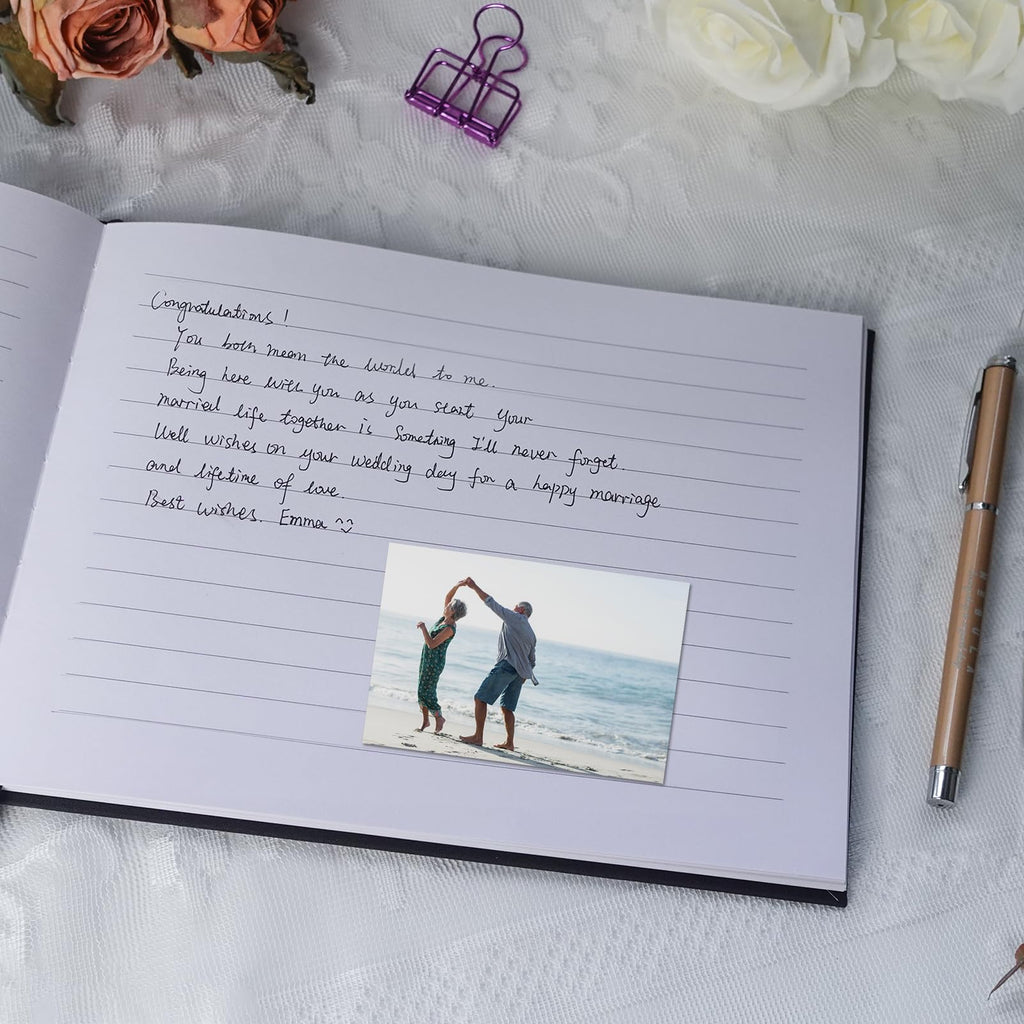 Congratulations!
You both mean the world to me.
Being here with you as you start your
married life together is something I'll never forget.
Well wishes on your wedding day for a happy marriage
and lifetime of love.
Best wishes. Emma ^^
NEBULA